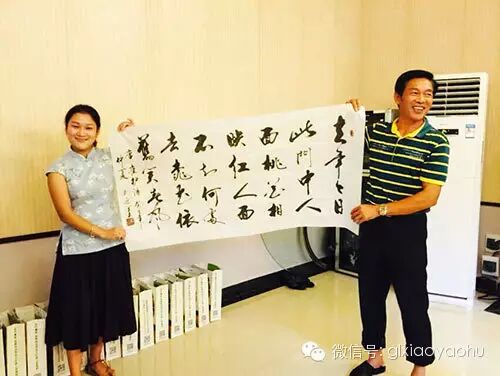 去年今日
此門中人
面桃花相
映红人面
不知何處
去桃花依
舊笑春风
微信号: glxiaoyaohu